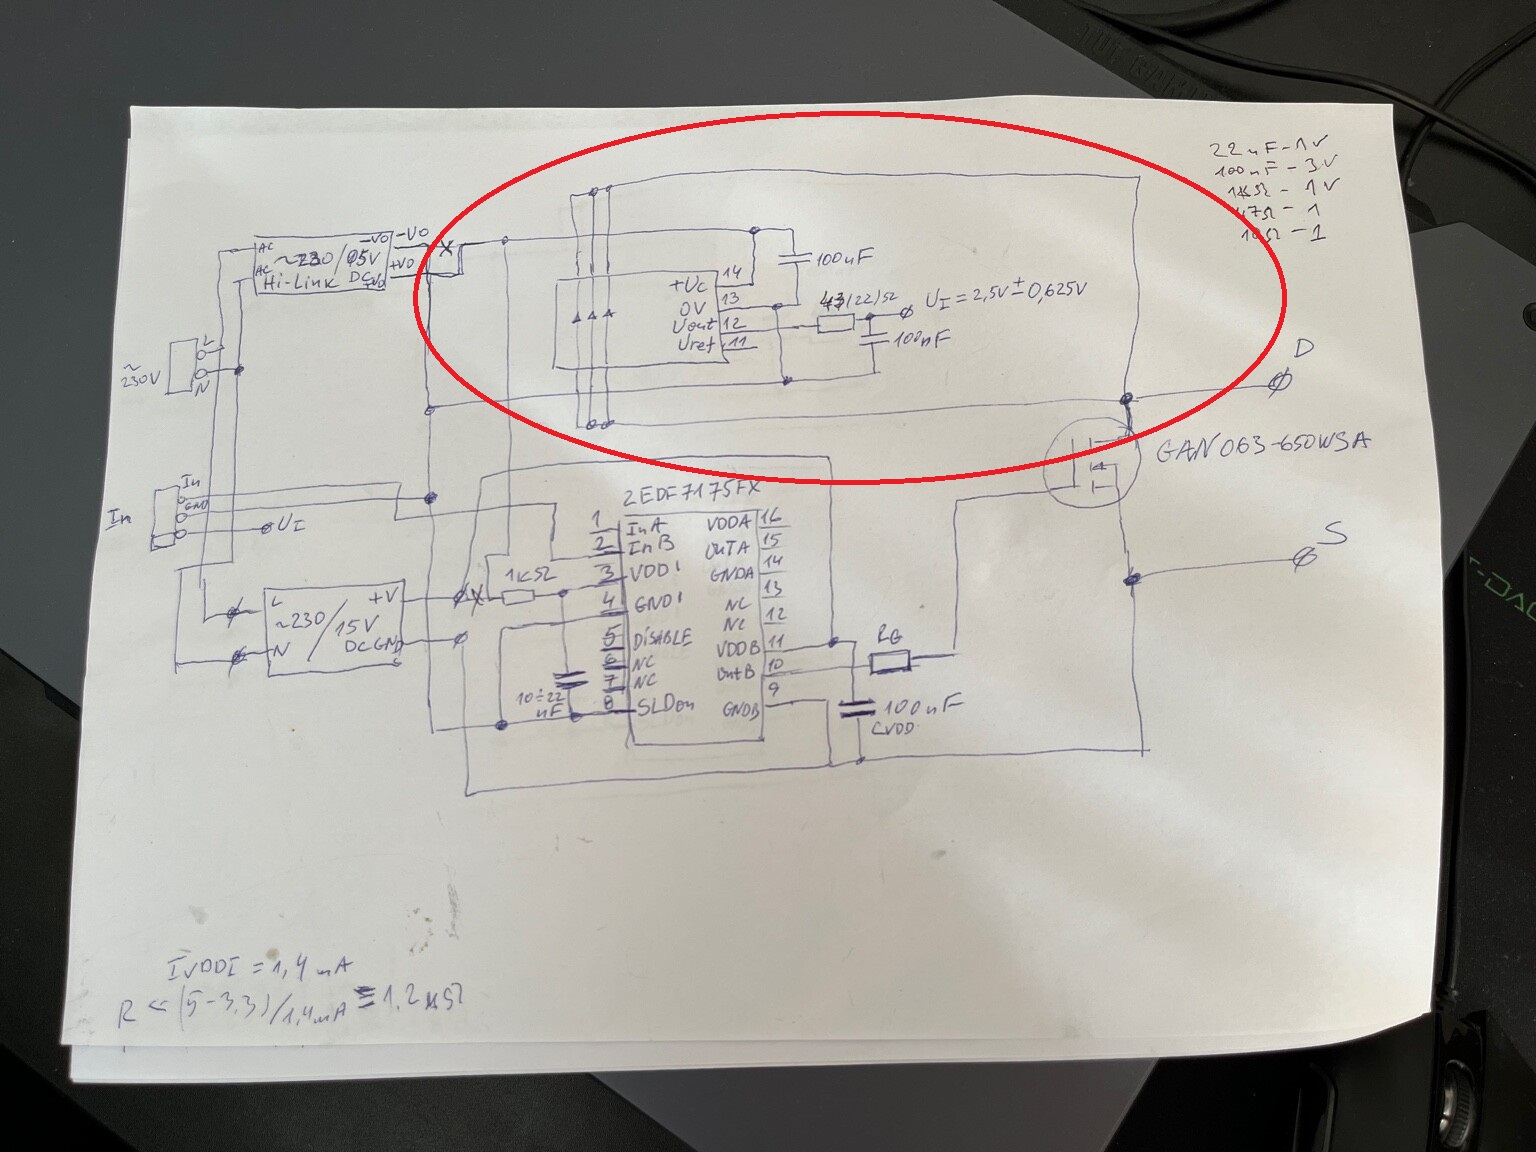 22nF-1V
100nF-3V
1kΩ - 1V
47Ω - 1
10Ω - 1
AC
AC
-VO
+VO
~230/05V
Hi-Link DC
-VO
+VO
X
L
N
~230V
+Uc 14
0V 13
Vout 12
Uref 11
100nF
(22)Ω
UI = 2,5V ± 0,625V
100nF
D
GAN063-650WSA
S
In
In
GND
UI
L
N
~230/15V
+V
DC GND
X
1kΩ
10÷22
nF
2EDF7175FX
1 InA
2 InB
3 VDDI
4 GNDI
5 DiSABLE
6 NC
7 NC
8 SLDon
VDDA 16
OUTA 15
GNDA 14
NC 13
NC 12
VDDB 11
OutB 10
GNDB 9
RG
100nF
CVDD
IVDDI = 1,4 mA
R <= (5-3,3)/1,4mA ≡ 1,2kΩ